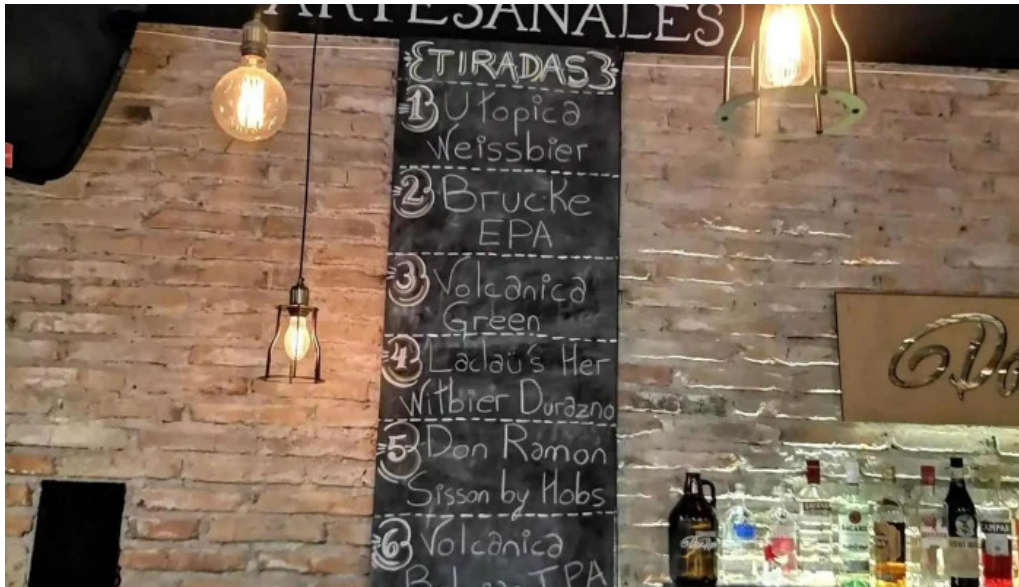 ARTESANALES
TIRADAS
1 Utopica
Weissbier
2 Brucke
EPA
3 Volcanica
Green
4 Laclau's Her
Witbier Durazno
5 Don Ramon
Sisson by Hobs
6 Volcanica
IPA
BACARDI
CAMPARI